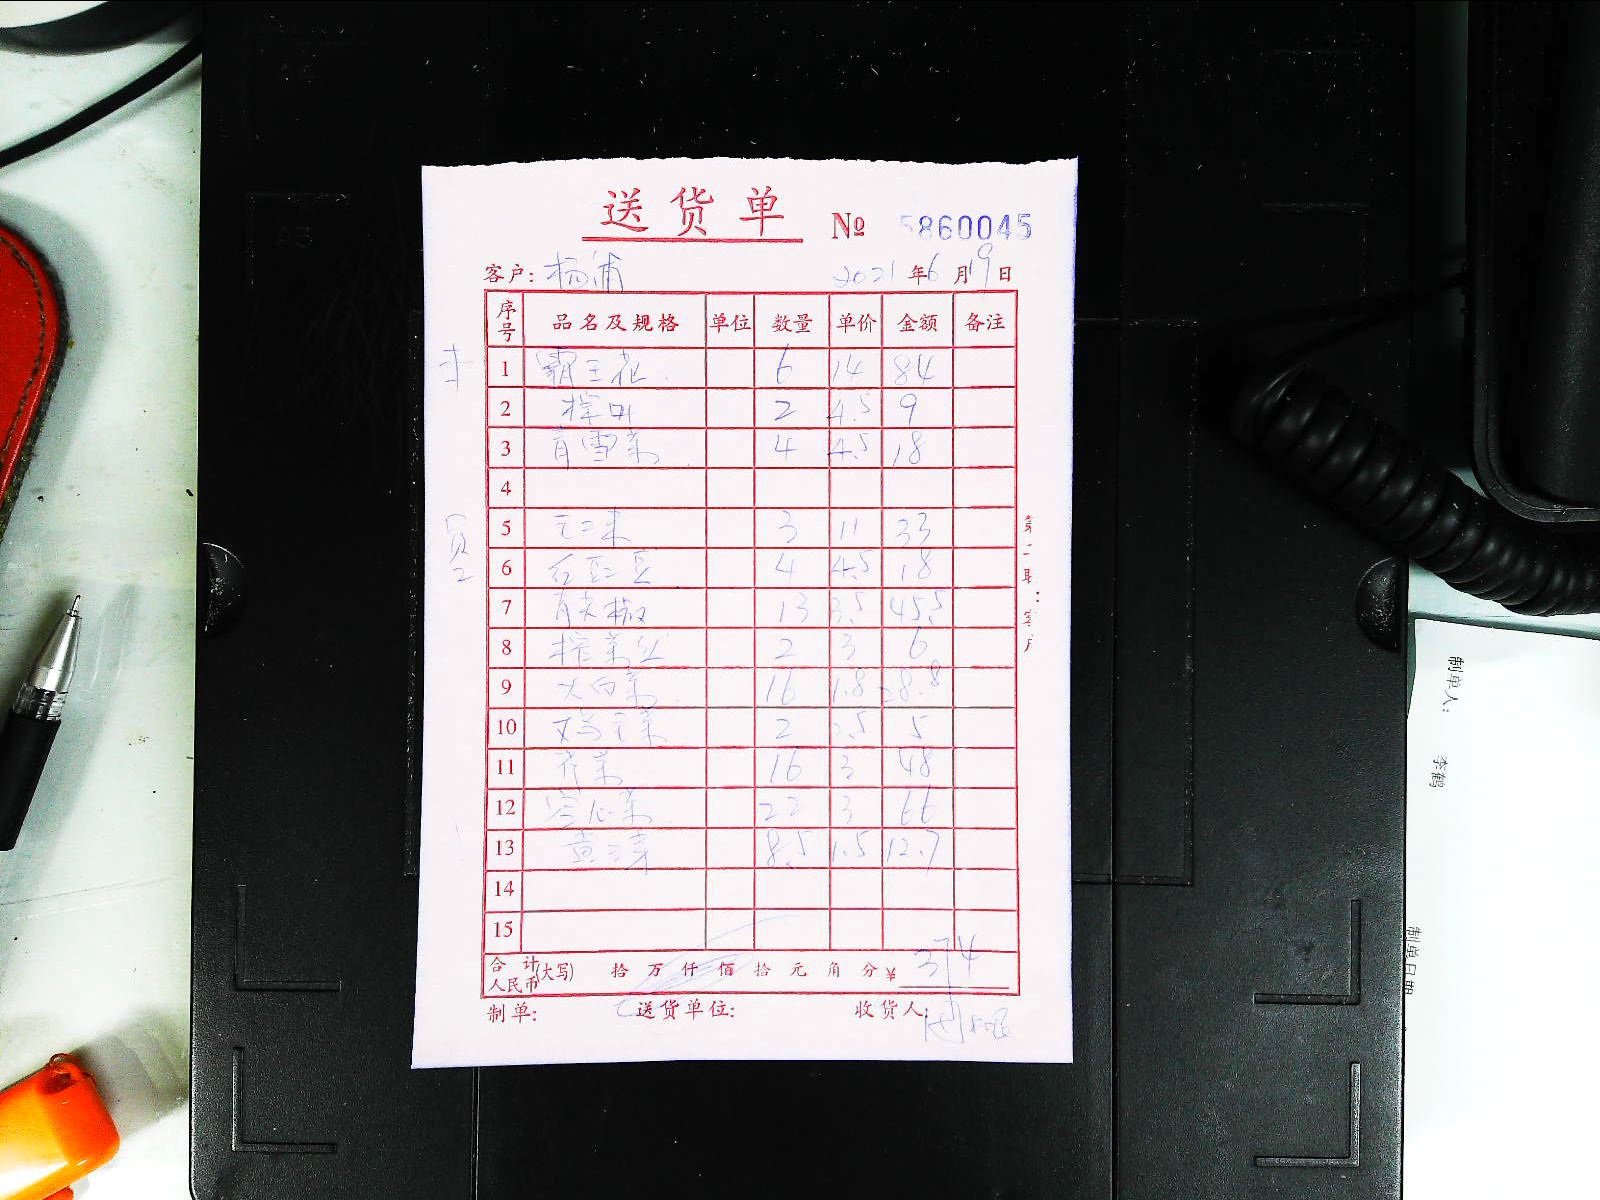 送货单 № 5860045
客户: 杨浦 2021年6月19日
序号 品名及规格 单位 数量 单价 金额 备注
1 霸王花 6 14 84
2 4.5 9
3 青雪菜 4 4.5 18
4
5 3 11 33
6 4 4.5 18
7 青尖椒 13 3.5 45.5
8 榨菜丝 2 3 6
9 大白菜 16 1.8 28.8
10 鸡毛菜 2 2.5 5
11 芹菜 16 3 48
12 空心菜 22 3 66
13 黄豆芽 8.5 1.5 12.7
14
15
合计人民币(大写) 拾 万 仟 佰 拾 元 角 分 ¥ 374
制单: 送货单位: 收货人:
第二联:客户
制单人: 李鹤
制单日期